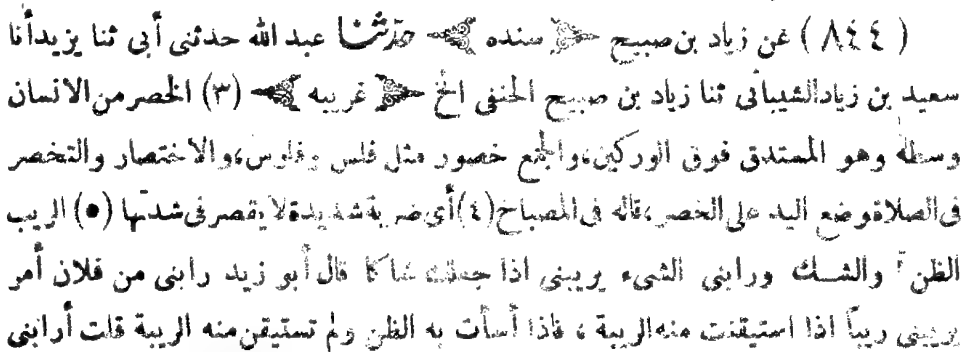 ( ٨٤٤ ) عن زياد بن صبيح ﴿ سنده ﴾ حدّثنا عبد الله حدثنى أبى ثنا يزيد أنا
سعيد بن زياد الشيبانى ثنا زياد بن صبيح الحنفى الخ ﴿ غريبه ﴾ (٣) الخصر من الانسان
وسطه وهو المستدق فوق الوركين، والجمع خصور مثل فلس وفلوس، والاختصار والتخصر
فى الصلاة وضع اليد على الخصر، قاله فى المصباح (٤) أى ضربة شديدة لا يقصر فى شدتها (٥) الريب
الظن والشـك ورابنى الشىء يريبنى اذا جعلك شاكا قال أبو زيد رابنى من فلان أمر
يريبنى ريباً اذا استيقنت منه الريبة ، فاذا أسأت به الظن ولم تستيقن منه الريبة قلت أرابنى